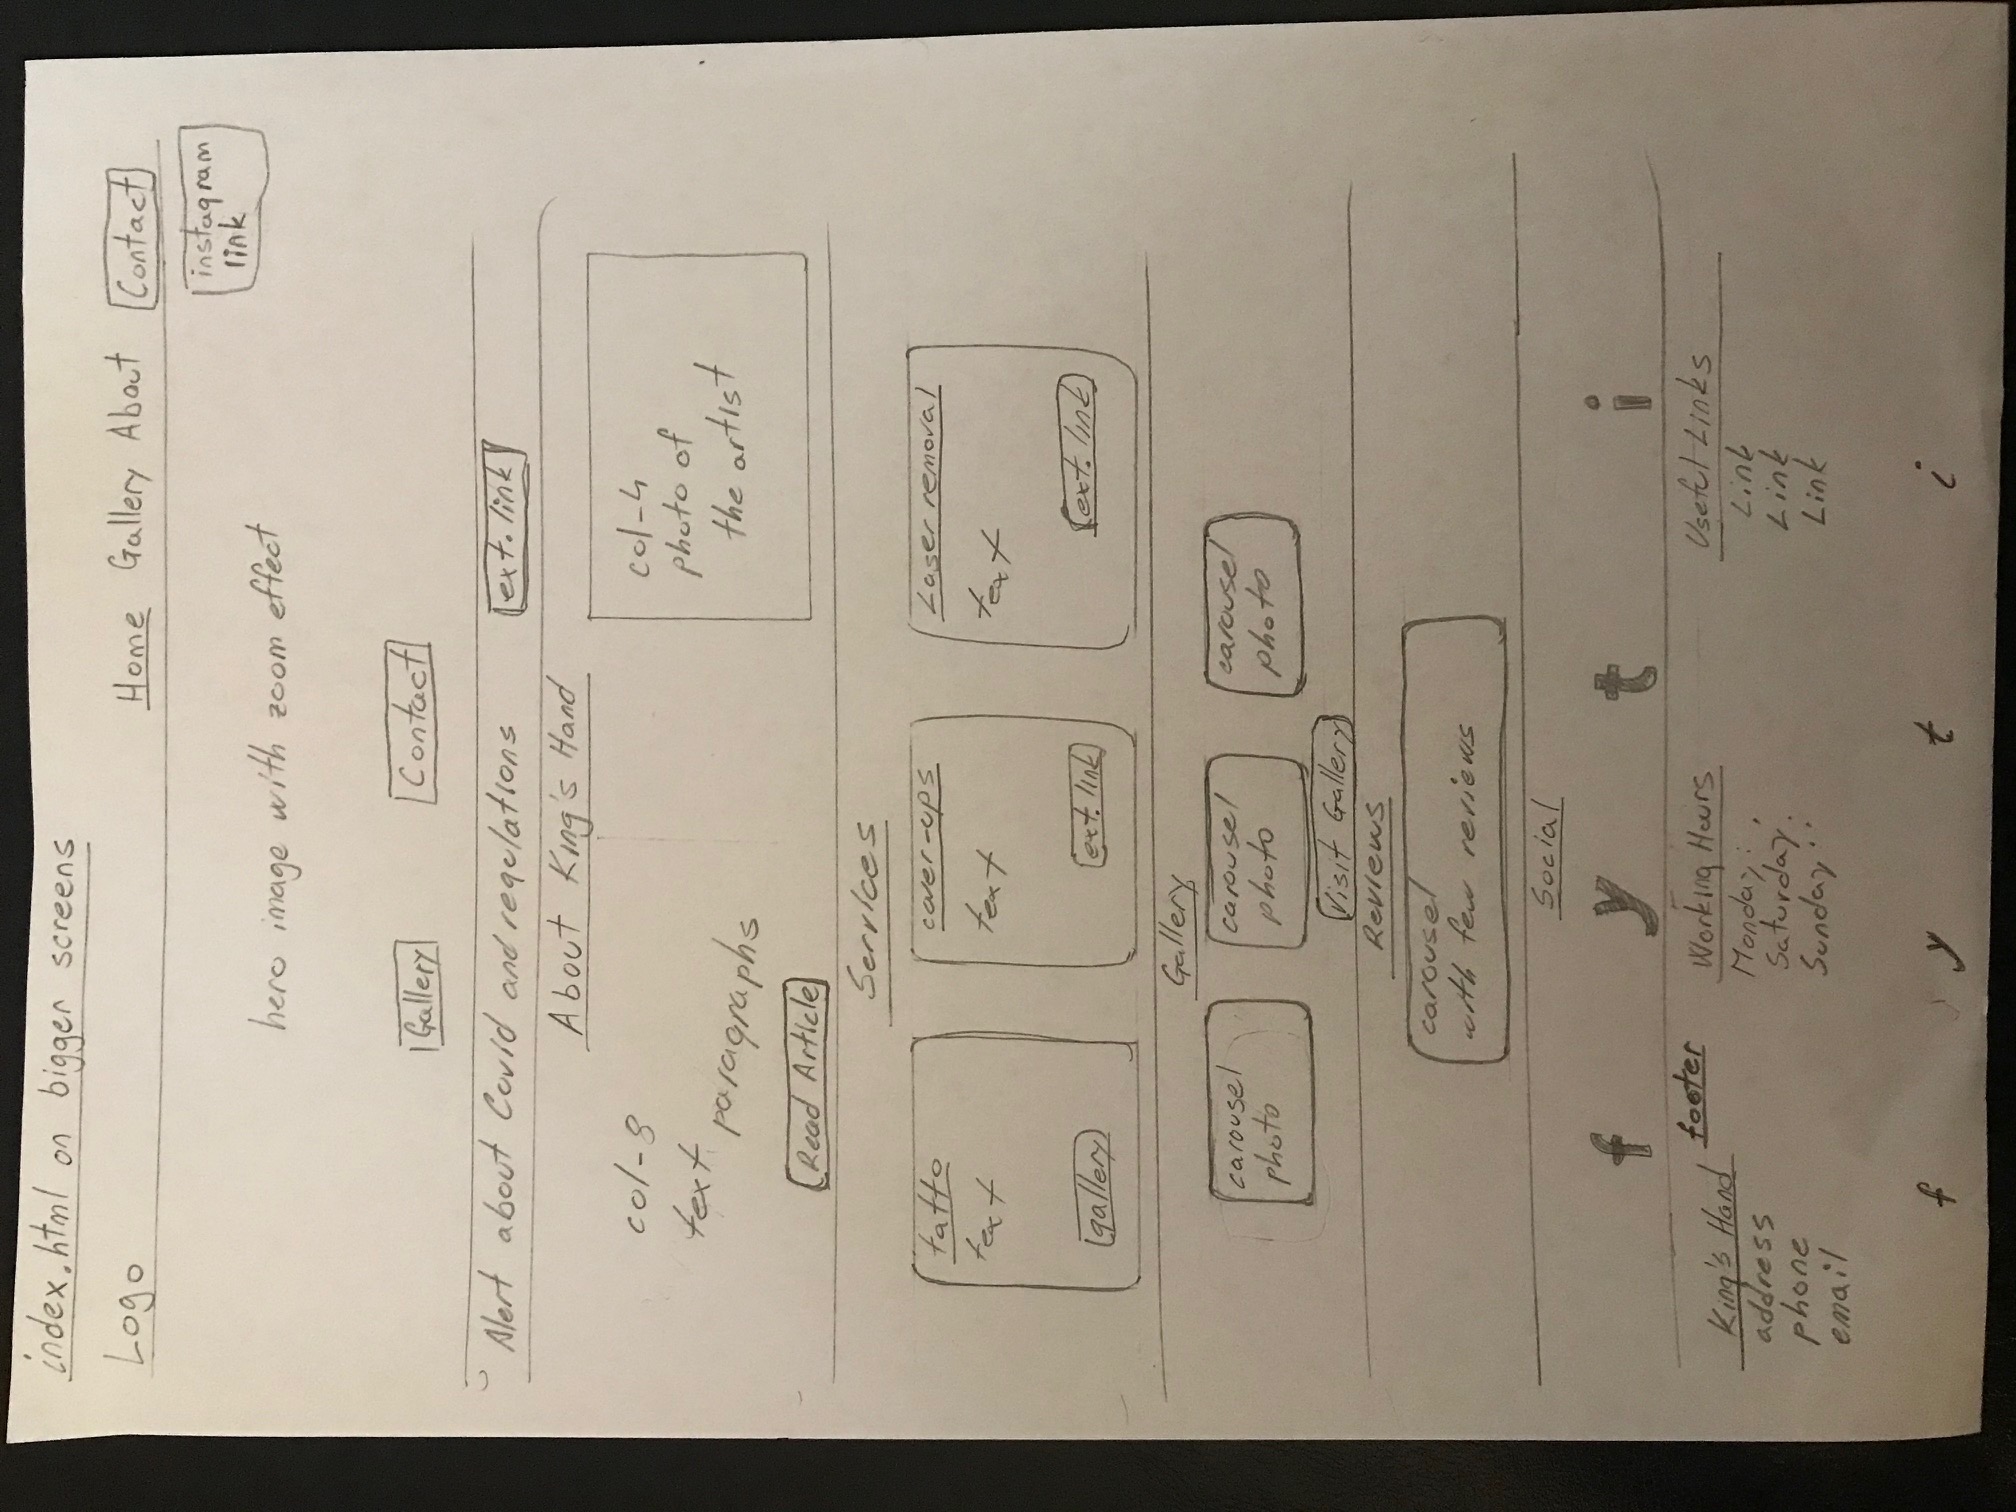 index.html on bigger screens
Logo Home Gallery About Contact
instagram
link
hero image with zoom effect
Gallery Contact
Alert about Covid and regulations ext. link
About King's Hand
col-8
text
paragraphs
Read Article
col-4
photo of
the artist
Services
tatto
text
gallery
cover-ups
text
ext. link
Laser removal
text
ext. link
Gallery
carousel
photo
carousel
photo
carousel
photo
Visit Gallery
Reviews
carousel
with few reviews
Social
f y t i
footer
King's Hand
address
phone
email
Working Hours
Monday:
Saturday:
Sunday:
Useful Links
Link
Link
Link
f y t i